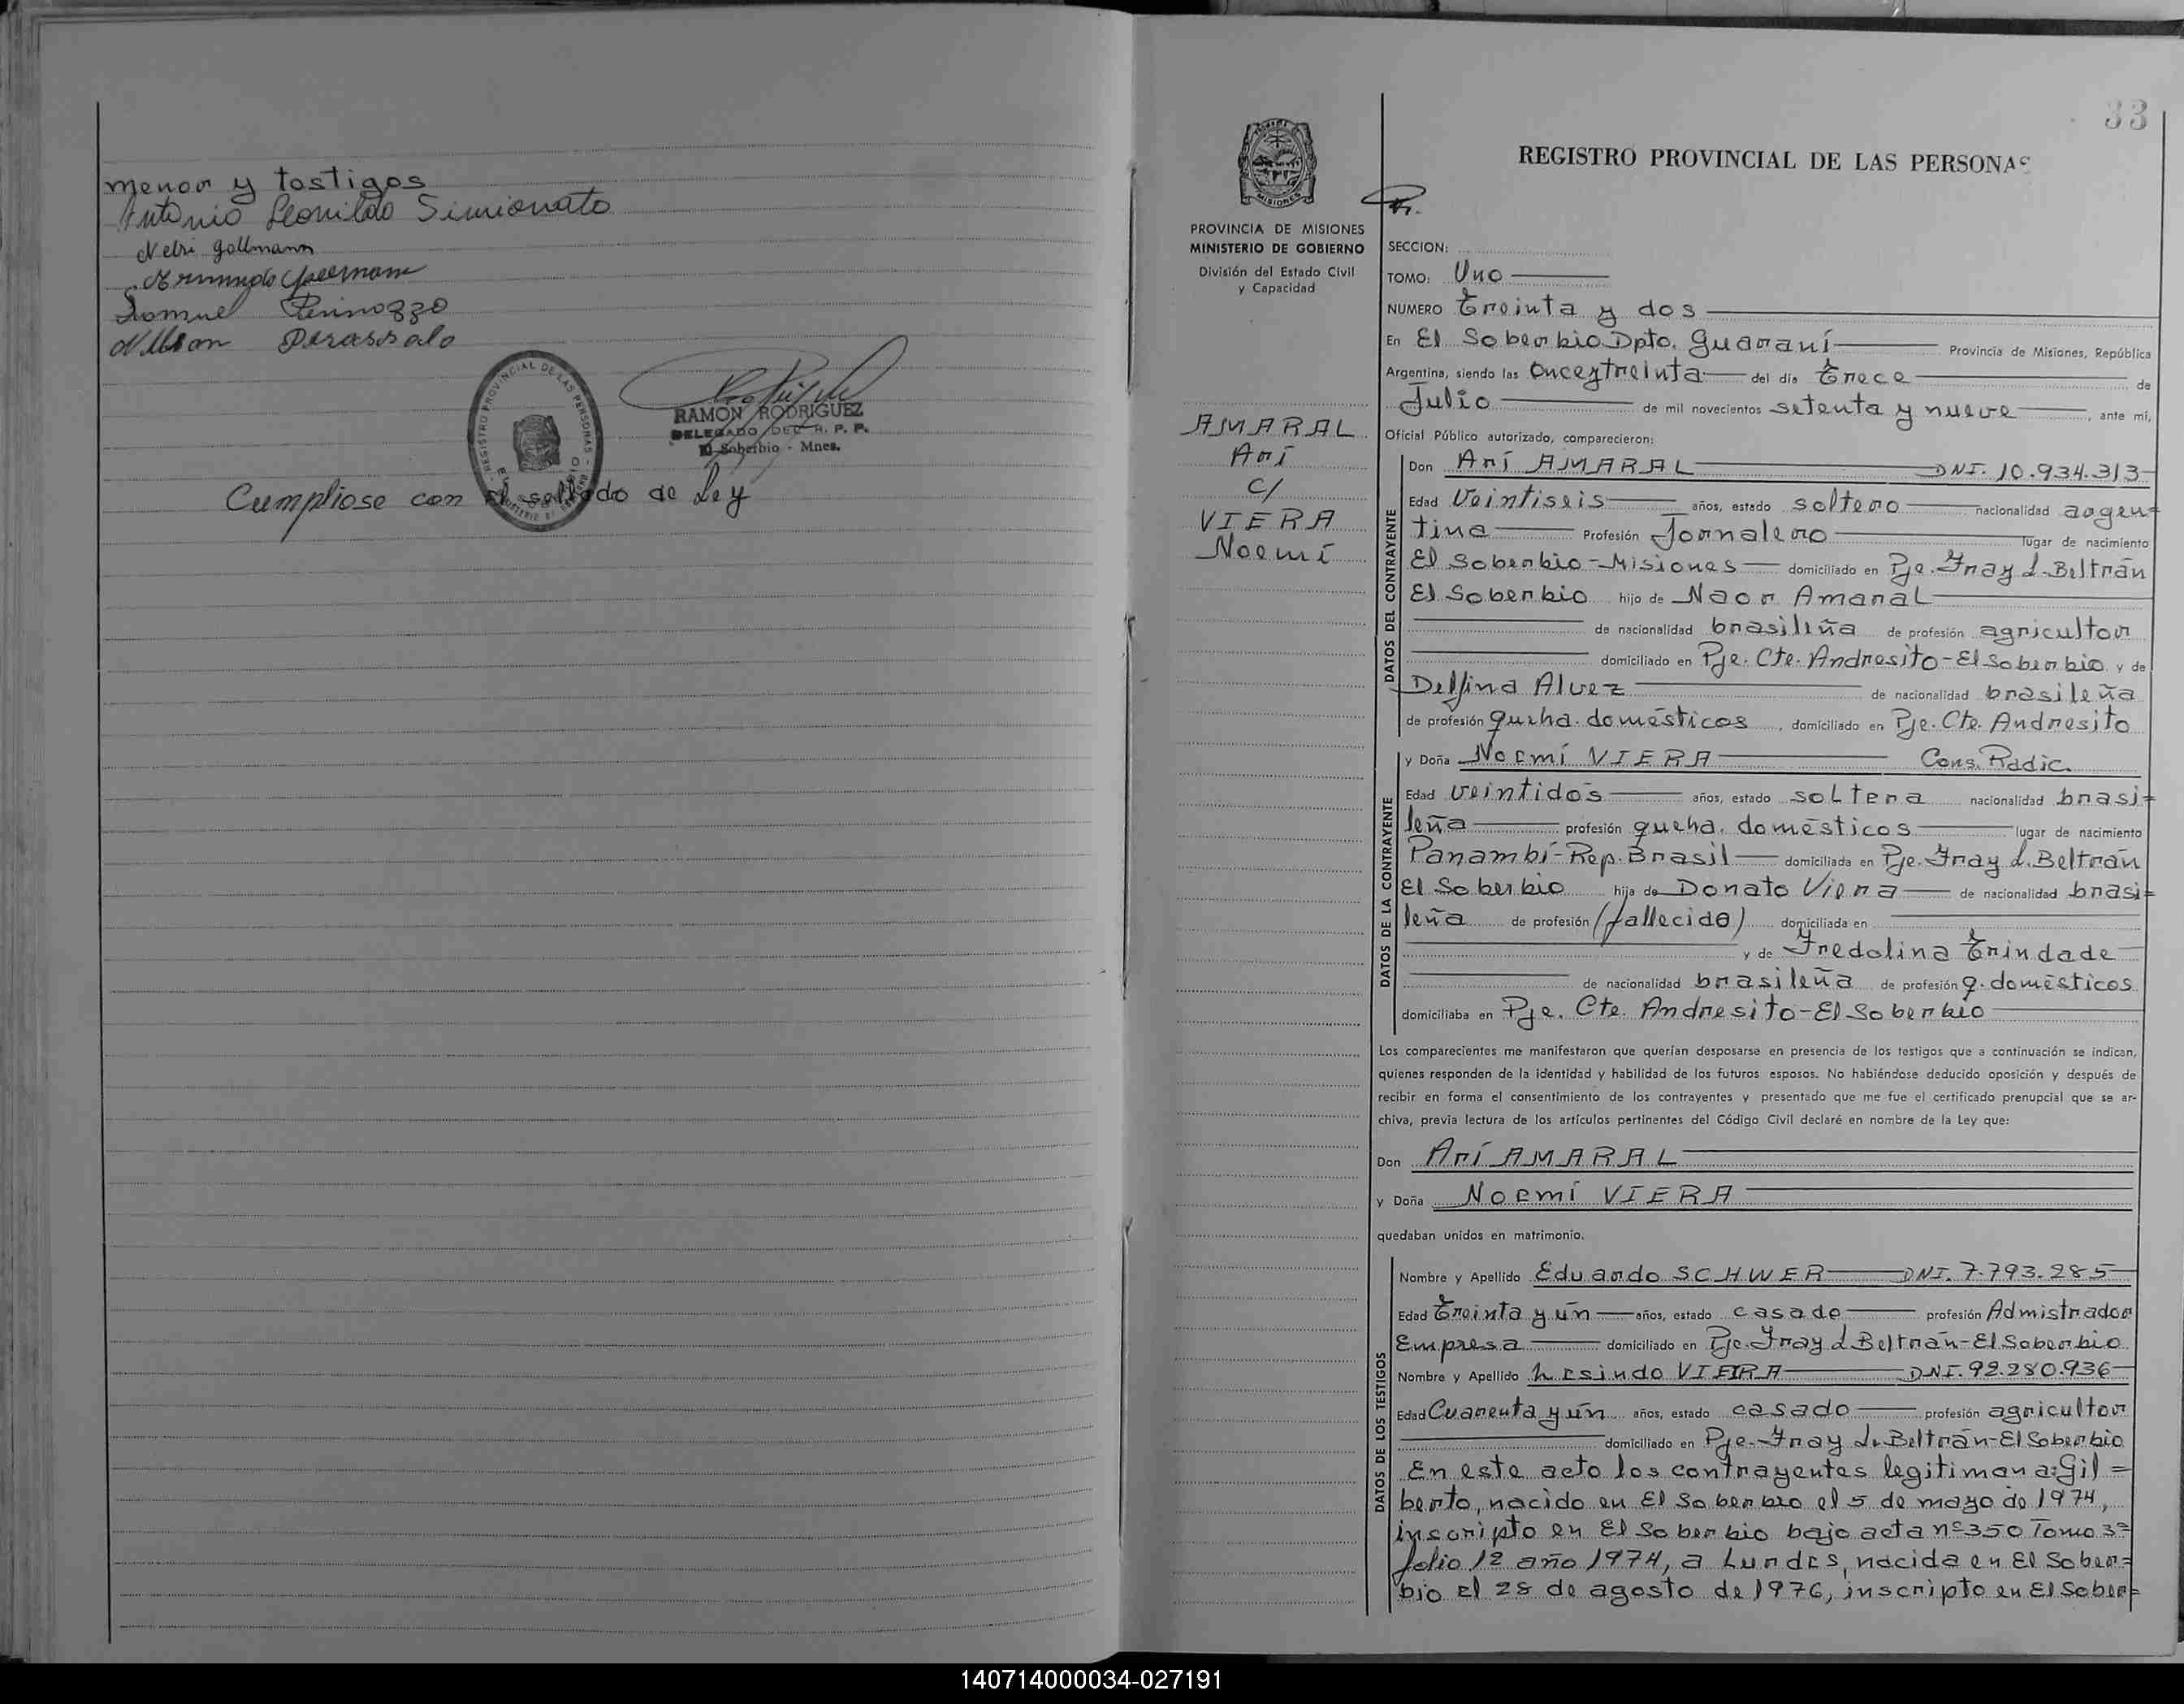 menor y tostigos
Antonio Leonildo Simionato
Nelsi Gallmann
RAMON RODRIGUEZ
DELEGADO DEL R. P. P.
El Soberbio - Mnes.
Cumpliose con el sellado de Ley
33
REGISTRO PROVINCIAL DE LAS PERSONAS
MISIONES
PROVINCIA DE MISIONES
MINISTERIO DE GOBIERNO
División del Estado Civil
y Capacidad
AMARAL
Arí
c/
VIERA
Noemí
SECCION:
TOMO: Uno
NUMERO Treinta y dos
En El Soberbio Dpto. Guaraní Provincia de Misiones, República
Argentina, siendo las Onceytreinta del día Trece de
Julio de mil novecientos setenta y nueve, ante mí,
Oficial Público autorizado, comparecieron:
DATOS DEL CONTRAYENTE
Don Arí AMARAL DNI. 10.934.313
Edad Veintiseis años, estado soltero nacionalidad argen=
tina Profesión Jornalero lugar de nacimiento
El Soberbio-Misiones domiciliado en Pje. Fray L. Beltrán
El Soberbio hijo de Naor Amaral
de nacionalidad brasileña de profesión agricultor
domiciliado en Pje. Cte. Andresito-El Soberbio y de
Delfina Alvez de nacionalidad brasileña
de profesión queha. domésticos, domiciliado en Pje. Cte. Andresito
DATOS DE LA CONTRAYENTE
y Doña Noemí VIERA Cons. Radic.
Edad veintidos años, estado soltera nacionalidad brasi=
leña profesión queha. domésticos lugar de nacimiento
Panambí-Rep. Brasil domiciliada en Pje. Fray L. Beltrán
El Soberbio hija de Donato Viera de nacionalidad brasi=
leña de profesión (fallecido) domiciliada en
y de Fredolina Trindade
de nacionalidad brasileña de profesión q. domésticos
domiciliaba en Pje. Cte. Andresito-El Soberbio
Los comparecientes me manifestaron que querían desposarse en presencia de los testigos que a continuación se indican,
quienes responden de la identidad y habilidad de los futuros esposos. No habiéndose deducido oposición y después de
recibir en forma el consentimiento de los contrayentes y presentado que me fue el certificado prenupcial que se ar-
chiva, previa lectura de los artículos pertinentes del Código Civil declaré en nombre de la Ley que:
Don Arí AMARAL
y Doña Noemí VIERA
quedaban unidos en matrimonio.
DATOS DE LOS TESTIGOS
Nombre y Apellido Eduardo SCHWER DNI. 7.793.285
Edad Treinta y ún años, estado casado profesión Admistrador
Empresa domiciliado en Pje. Fray L Beltrán-El Soberbio
Nombre y Apellido Lresindo VIERA DNI. 92.280.936
Edad Cuarenta y ún años, estado casado profesión agricultor
domiciliado en Pje. Fray L. Beltrán-El Soberbio
En este acto los contrayentes legitiman a: Gil=
berto, nacido en El Soberbio el 5 de mayo de 1974,
inscripto en El Soberbio bajo acta nº 350 Tomo 3º
folio 12 año 1974, a Lurdes, nacida en El Sober=
bio el 28 de agosto de 1976, inscripto en El Sober=
140714000034-027191